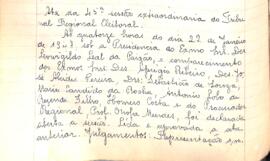 Ata da 45ª sessão extraordinaria do Tribu-
nal Regional Eleitoral.
Às quatorze horas do dia 22 de Janeiro
de 1948, sob a Presidencia do Exmo Snr. Des.
Leal da Paixão, e comparecimento
dos Exmos Snrs. Des. Ribeiro, Des. Jo
sé Pereira, Drs. Sebastião de Souza,
Mario Candido da Rocha, Antonio Lobo de
Rezende Filho, Homero Costa e do Procurador
Regional, Prof. Onofre Mendes, foi declarada
aberta a sessão. Lida e aprovada a ata
anterior. Julgamentos: Representação